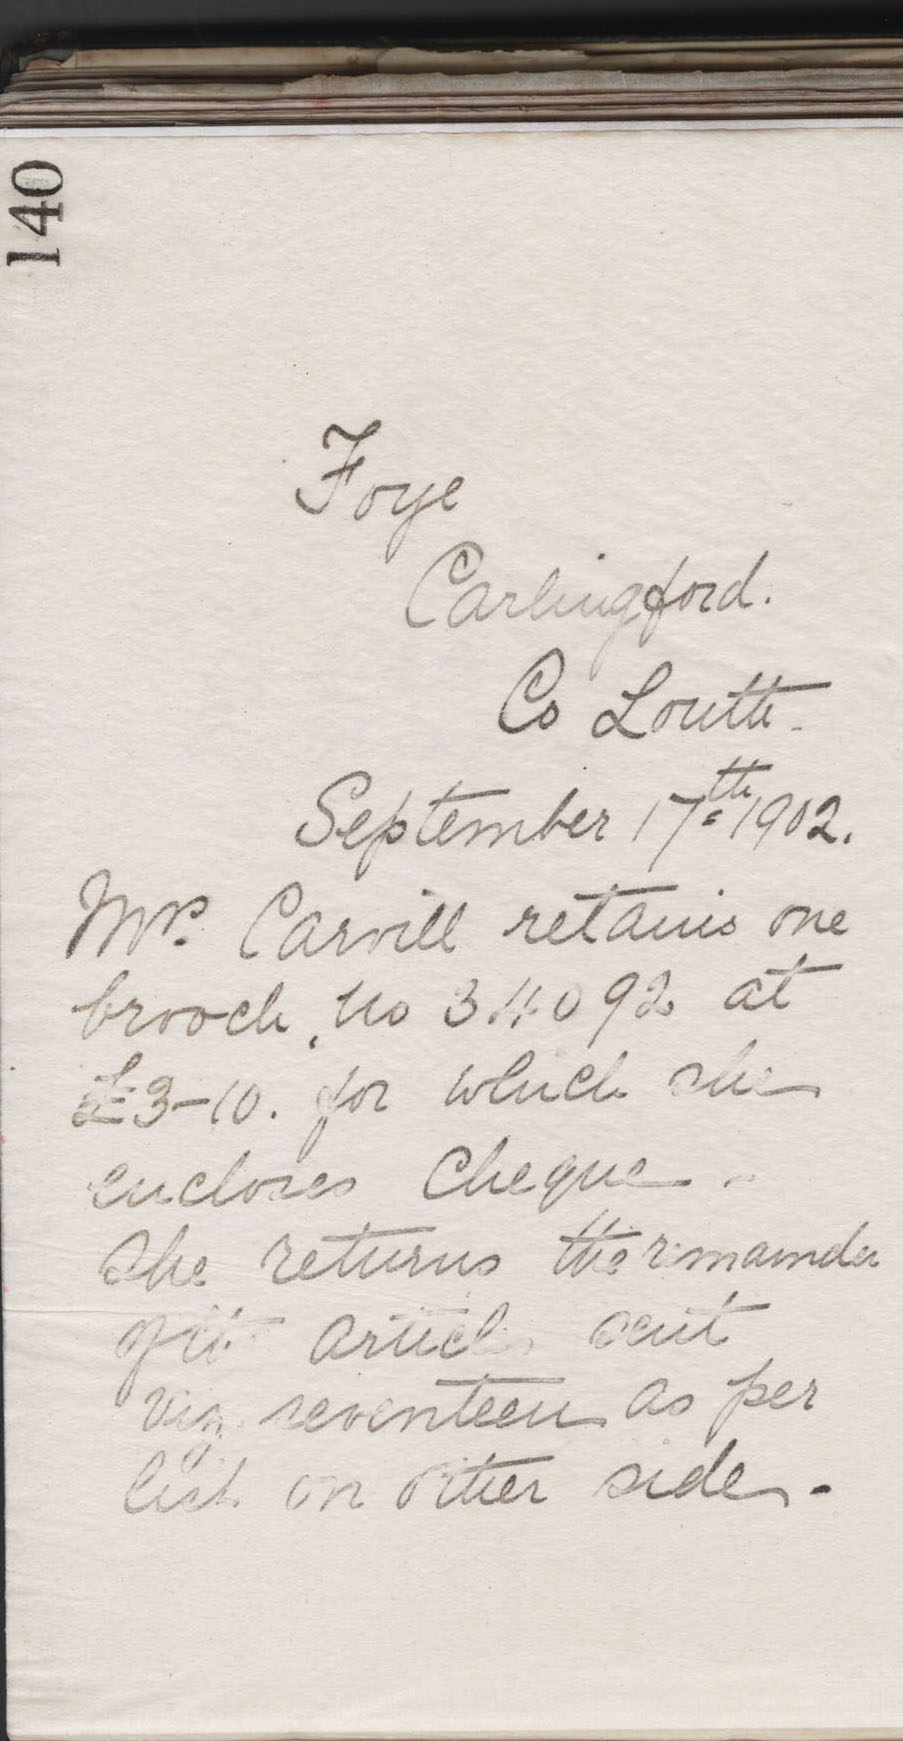 140
Foye
Carlingford.
Co Louth.
September 17th 1902.
Mrs. Carvill retains one
brooch, No 34092 at
£3-10. for which she
encloses Cheque.
She returns the remainder
of the articles sent
viz seventeen as per
list on other side.